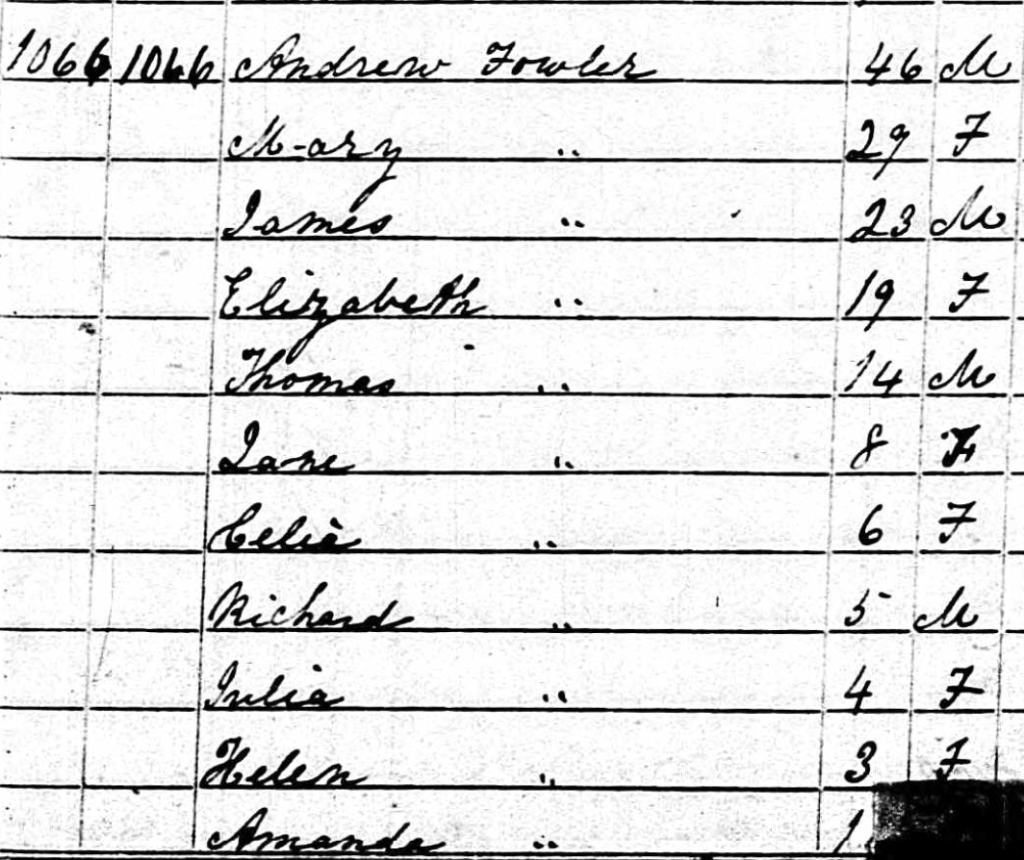 1066 1066 Andrew Fowler 46 M
Mary " 29 F
James " 23 M
Elizabeth " 19 F
Thomas " 14 M
Jane " 8 F
Celia " 6 F
Richard " 5 M
Julia " 4 F
Helen " 3 F
Amanda " 1